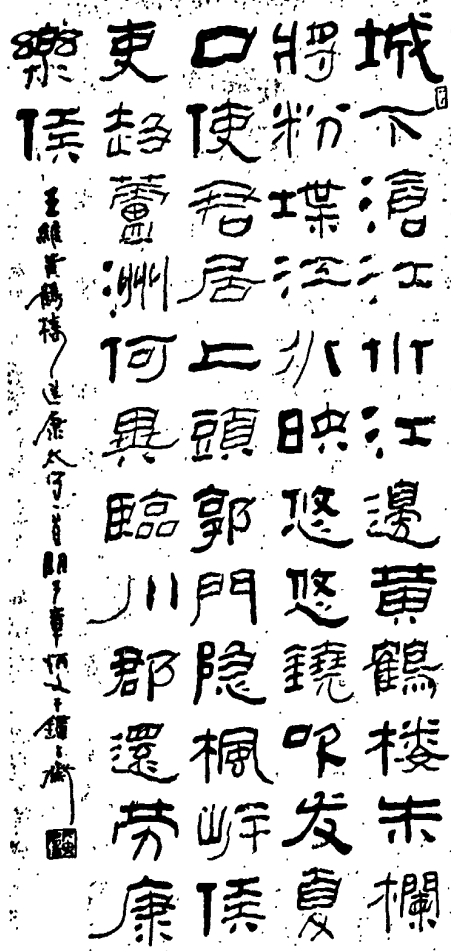 城下滄江水江邊黄鶴楼朱欄
將粉堞江水映悠悠鐃吹发夏
口使君居上頭郭門隐楓岸侯
吏趋蘆洲何異臨川郡還劳康
樂侯
王維黄鶴楼送康太守一首 章炳文于